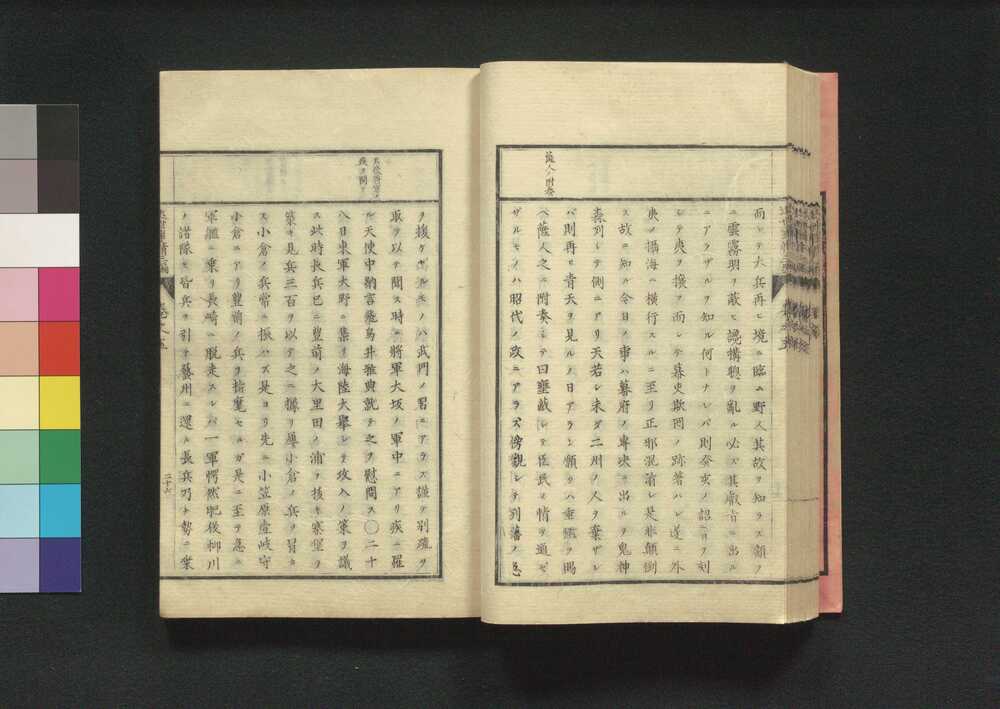 薩人附奏
而シテ大兵再ヒ境ニ臨ム野人其故ヲ知ラス顧フ
ニ雲霧明ヲ蔽ヒ讒構聰ヲ亂ル必ス其叡旨ニ出ル
ニアラザルヲ知ル何トナレバ則癸亥ノ詔ヲ刻
シテ夾ヲ攘フ而シテ幕吏欺罔ノ跡著ハレ遂ニ外
ノ攝海ヘ横行スルニ至リ正邪混淆シ是非顛倒
ス故ニ知ル今日ノ事ハ幕府ノ專決ニ出ルヲ鬼神
森列シテ側ニアリ天若シ未ダ二州ノ人ヲ棄ザレ
バ則再ヒ青天ヲ見ルノ日アラン願クハ垂鑑ヲ賜
ヘ薩人之ニ附奏シテ曰壅蔽シテ臣民ノ情ヲ通ゼ
ザルモノハ昭代ノ政ニアラズ傍觀シテ列藩ノ急
ヲ援ケザルモノハ武門ノ習ニアラズ謹テ別疏ヲ
取ヲ以テ聞ス時ニ將軍大坂ノ軍中ニアリ疾ニ罹
ル天使中納言飛鳥井雅典就テ之ヲ慰問ス〇二十
八日東軍大野ニ集リ海陸大擧シテ攻入ノ策ヲ議
ス此時長兵已ニ豐前ノ大里田ノ浦ヲ拔キ寨堡ヲ
築キ見兵三百ヲ以テ之ニ據リ專小倉ノ兵ヲ冒
ス小倉ノ兵常ニ振ハズ是ヨリ先ニ小笠原壹岐守
小倉ニアリ豐前ノ兵ヲ指麾セルガ是ニ至テ急ニ
軍艦ニ乘リ長崎ニ脱走スレバ一軍愕然肥後柳川
ノ諸隊モ皆兵ヲ引テ藝州ニ還ル長兵乃チ勢ニ乘